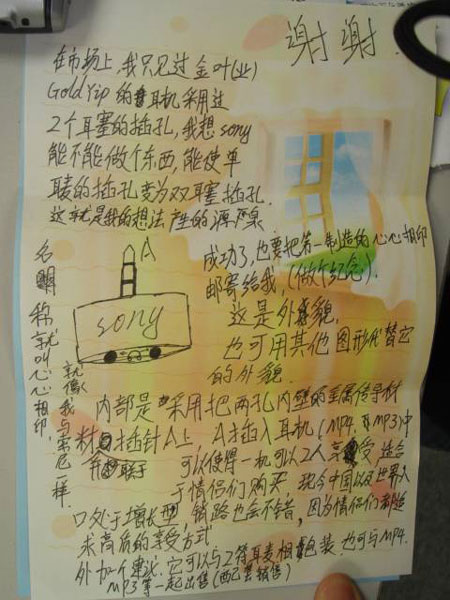 谢谢.
在市场上,我只见过金叶(业)
Gold Yip 的耳机采用过
2个耳塞的插孔,我想sony
能不能做个东西,能使单
耳塞的插孔变为双耳塞插孔.
这就是我的想法产生的源泉
成功了,也要把第一制造的心心相印
邮寄给我,(做个纪念).
名称就叫心心相印,
就像我与索尼一样.
A
sony
这是外貌.
也可用其他图形代替它
的外貌.
内部是采用把两孔内壁的金属传导材
料 插针A上 A插入耳机(MP4.及MP3)中
可以使得一机可以2人享受,适合
于情侣们购买 现今中国以及世界人
口处于增长型,销路也会不错,因为情侣们都追
求高质的享受方式
外加个建议.它可以与2符耳麦相包装 也可与MP4.
MP3等一起出售(配套销售)